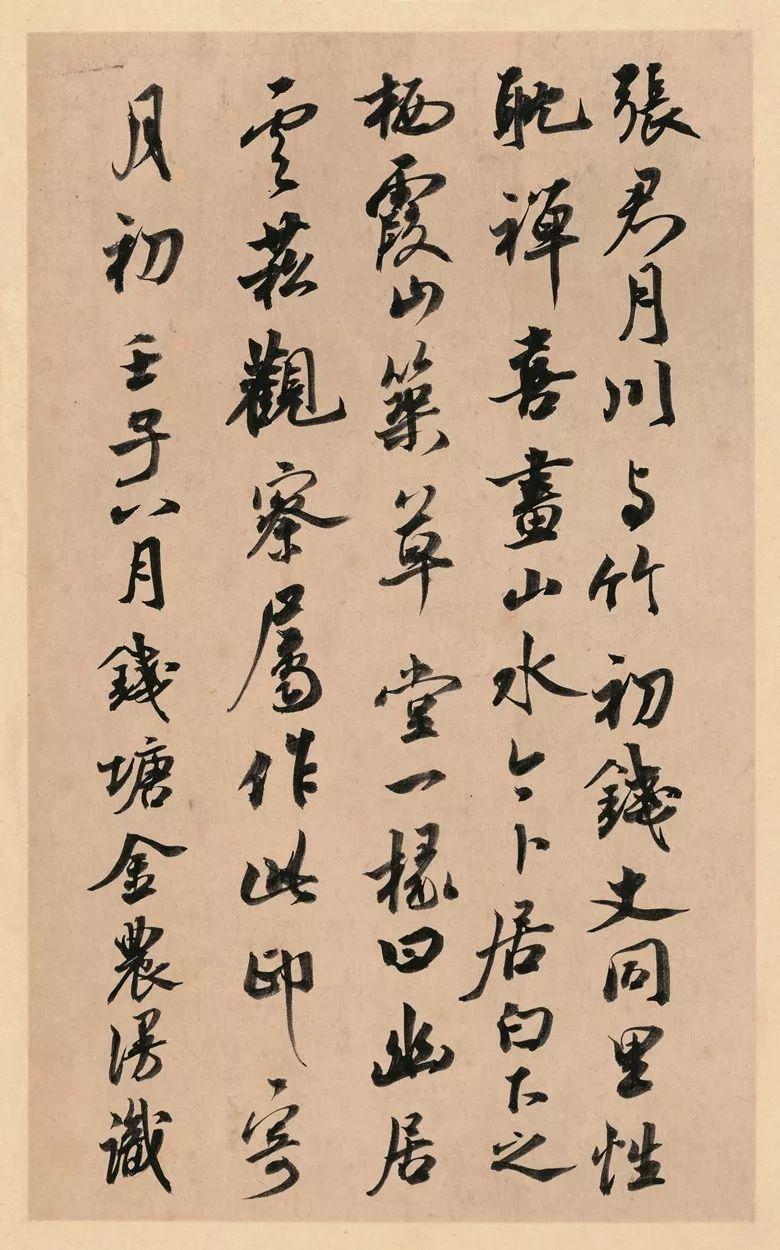 張君月川与竹初錢丈同里性
耽禅喜畫山水今卜居白下之
栖霞山築草堂一椽曰幽居
雲菘觀察属作此印寄
月初壬子八月錢塘金農漫識